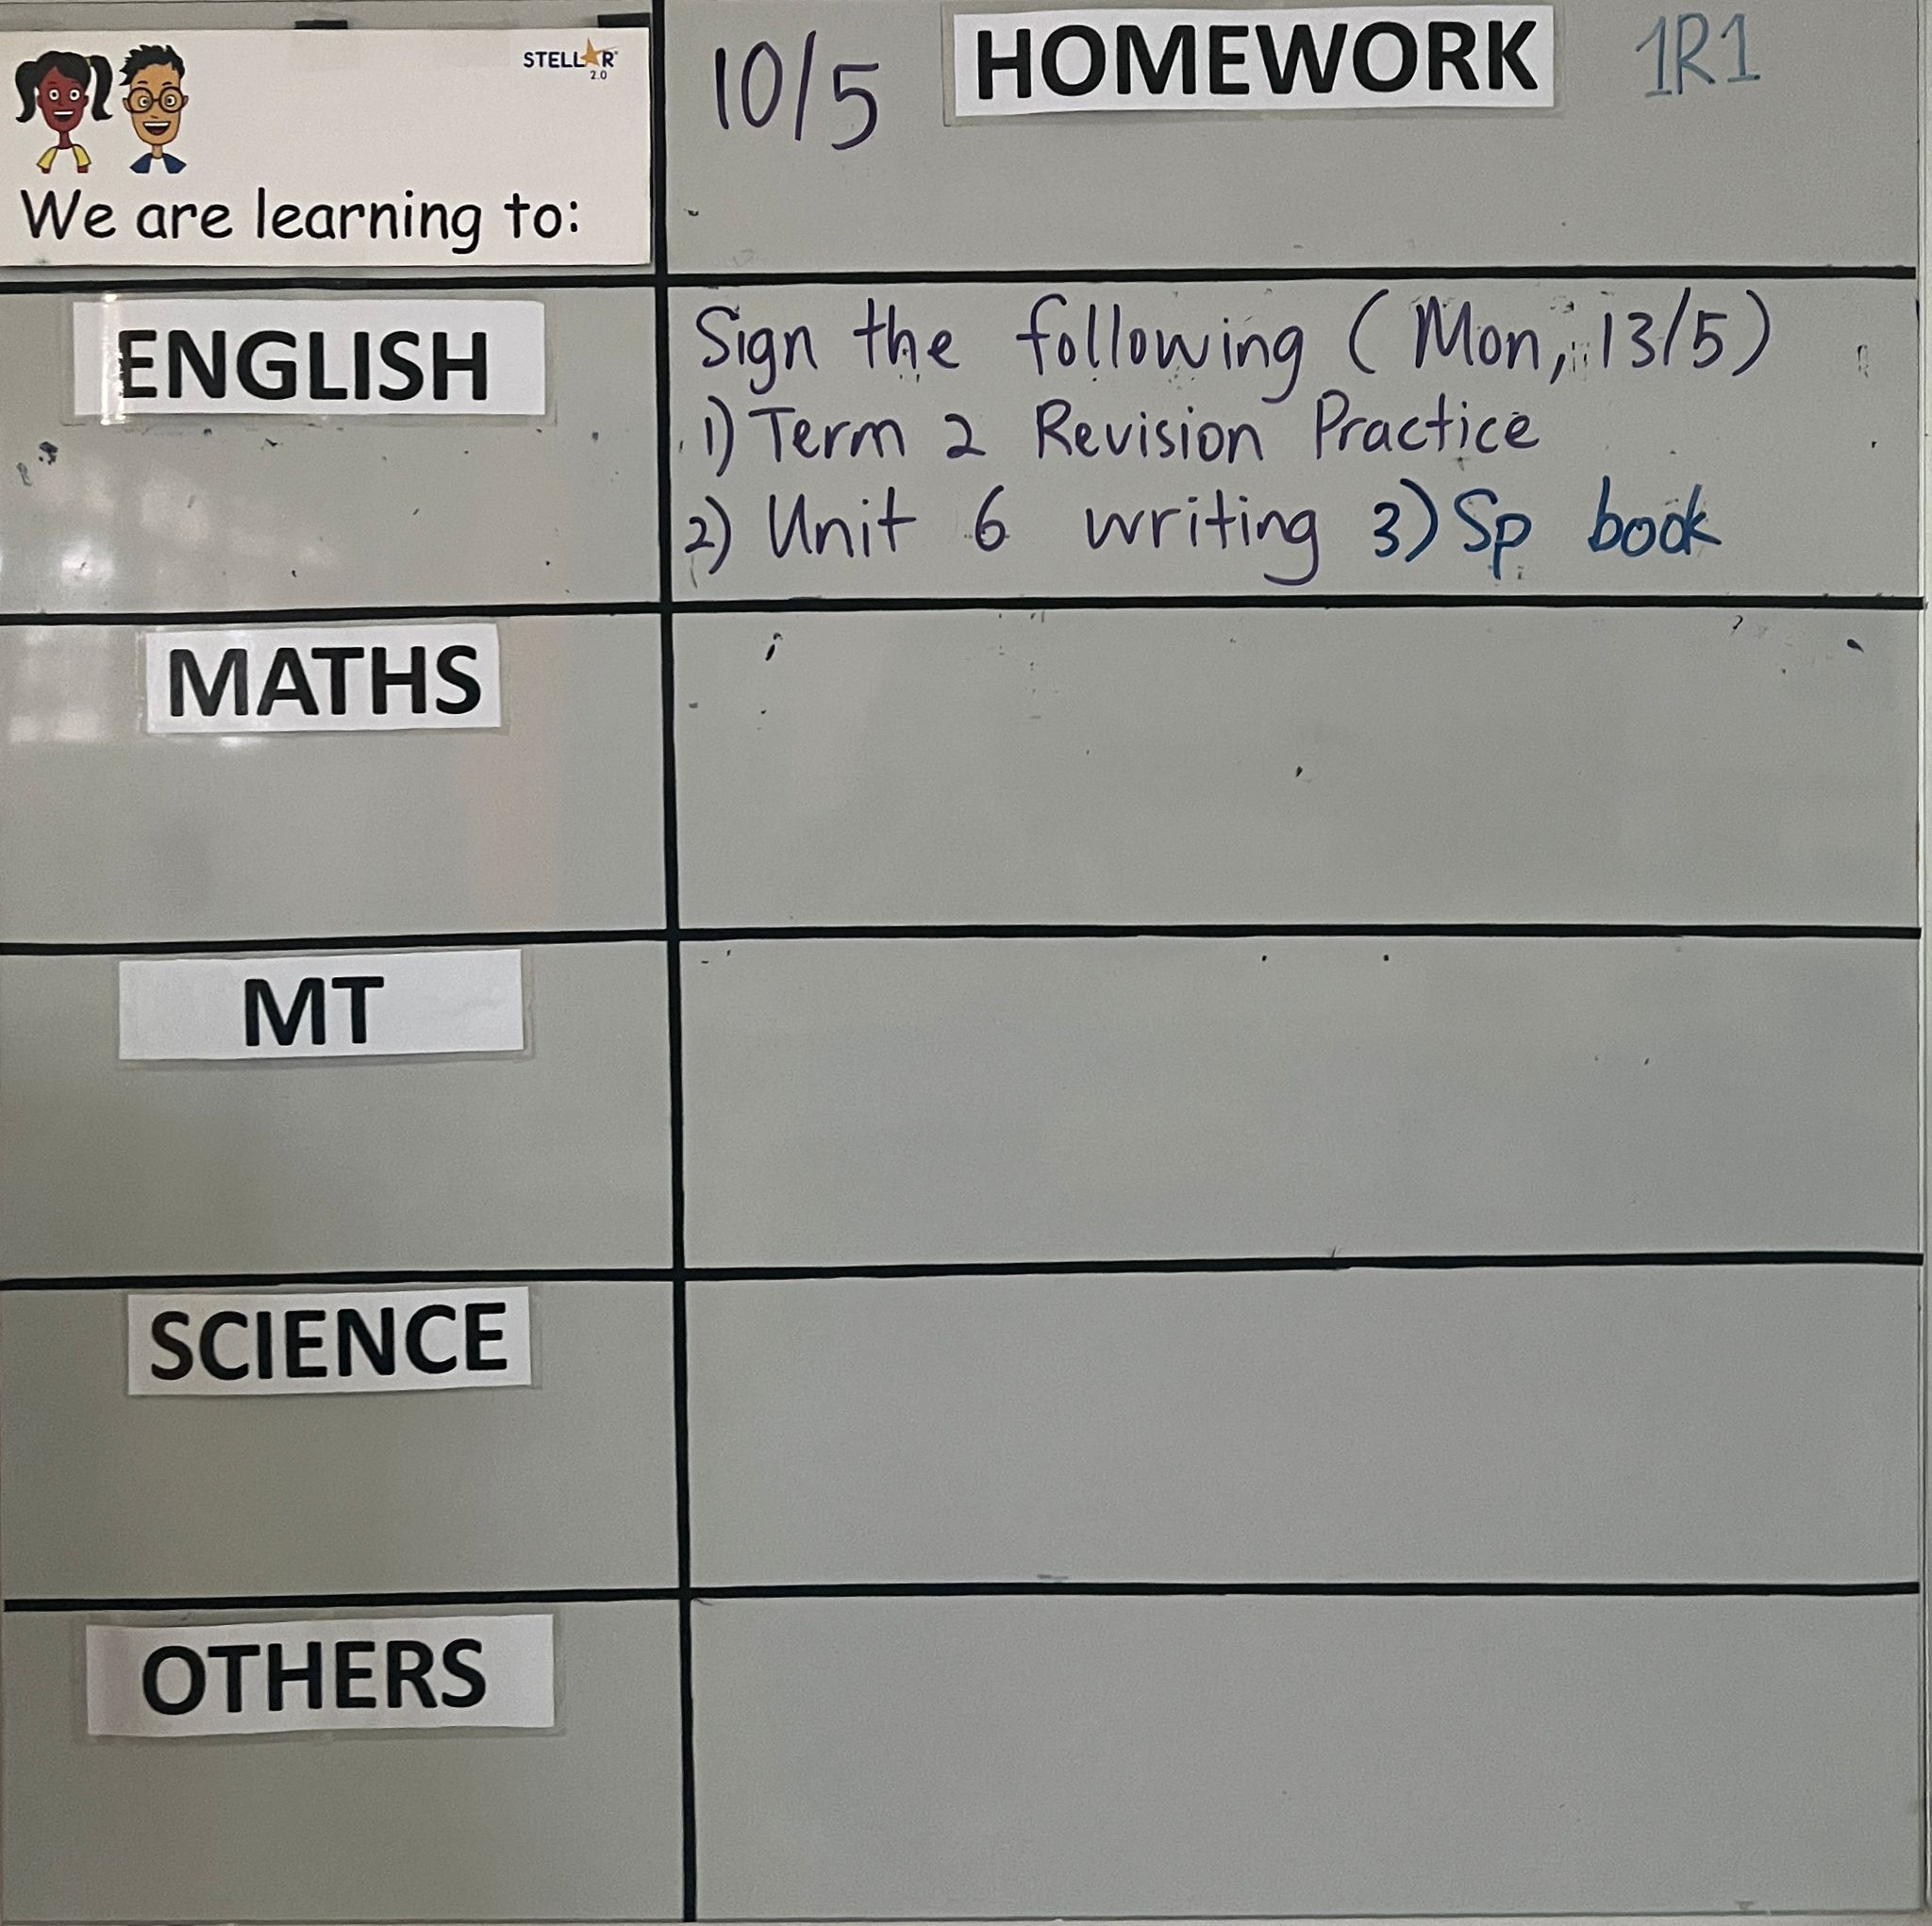 STELLAR
2.0
We are learning to:
10/5 HOMEWORK 1R1
ENGLISH
Sign the following (Mon, 13/5)
1) Term 2 Revision Practice
2) Unit 6 writing 3) Sp book
MATHS
MT
SCIENCE
OTHERS